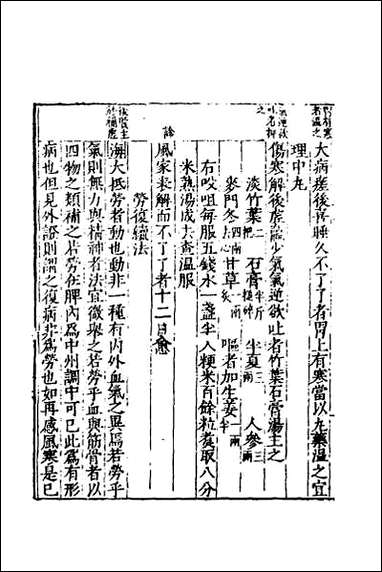 大病瘥後喜唾久不了了者胃上有寒當以丸藥溫之宜
理中丸
傷寒解後虛羸少氣氣逆欲吐者竹葉石膏湯主之
淡竹葉二把 石膏半斤 半夏三兩 人參三兩
麥門冬四兩去心 甘草炙一兩 嘔者加生姜一兩半
右㕮咀每服五錢水一盞半入粳米百餘粒煑取八分
米熟湯成去渣溫服
風家表解而不了了者十二日愈
勞復續法
海大抵勞者動也動非一種有内外血氣之異焉若勞乎
氣則無力與精神者法宜微舉之若勞乎血與筋骨者以
四物之類補之若勞在脾内為中州調中可已此為有形
病也但見外證則謂之復病非為勞也如再感風寒是已